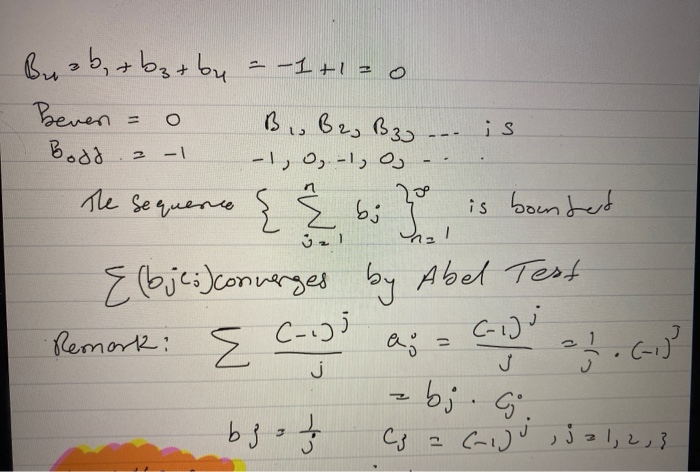 B₄ = b₁ + b₃ + b₄ = -1 + 1 = 0
Beven = 0 B₁, B₂, B₃, --- is
Bodd = -1 -1, 0, -1, 0, - - .
The sequence { n Σ j=1 bj }∞ n=1 is bounted
Σ(bjcj)converges by Abel Test
Remark: Σ (-1)^j / j aj = (-1)^j / j = 1/j · (-1)^j
= bj · cj
bj = 1/j cj = (-1)^j , j = 1, 2, 3